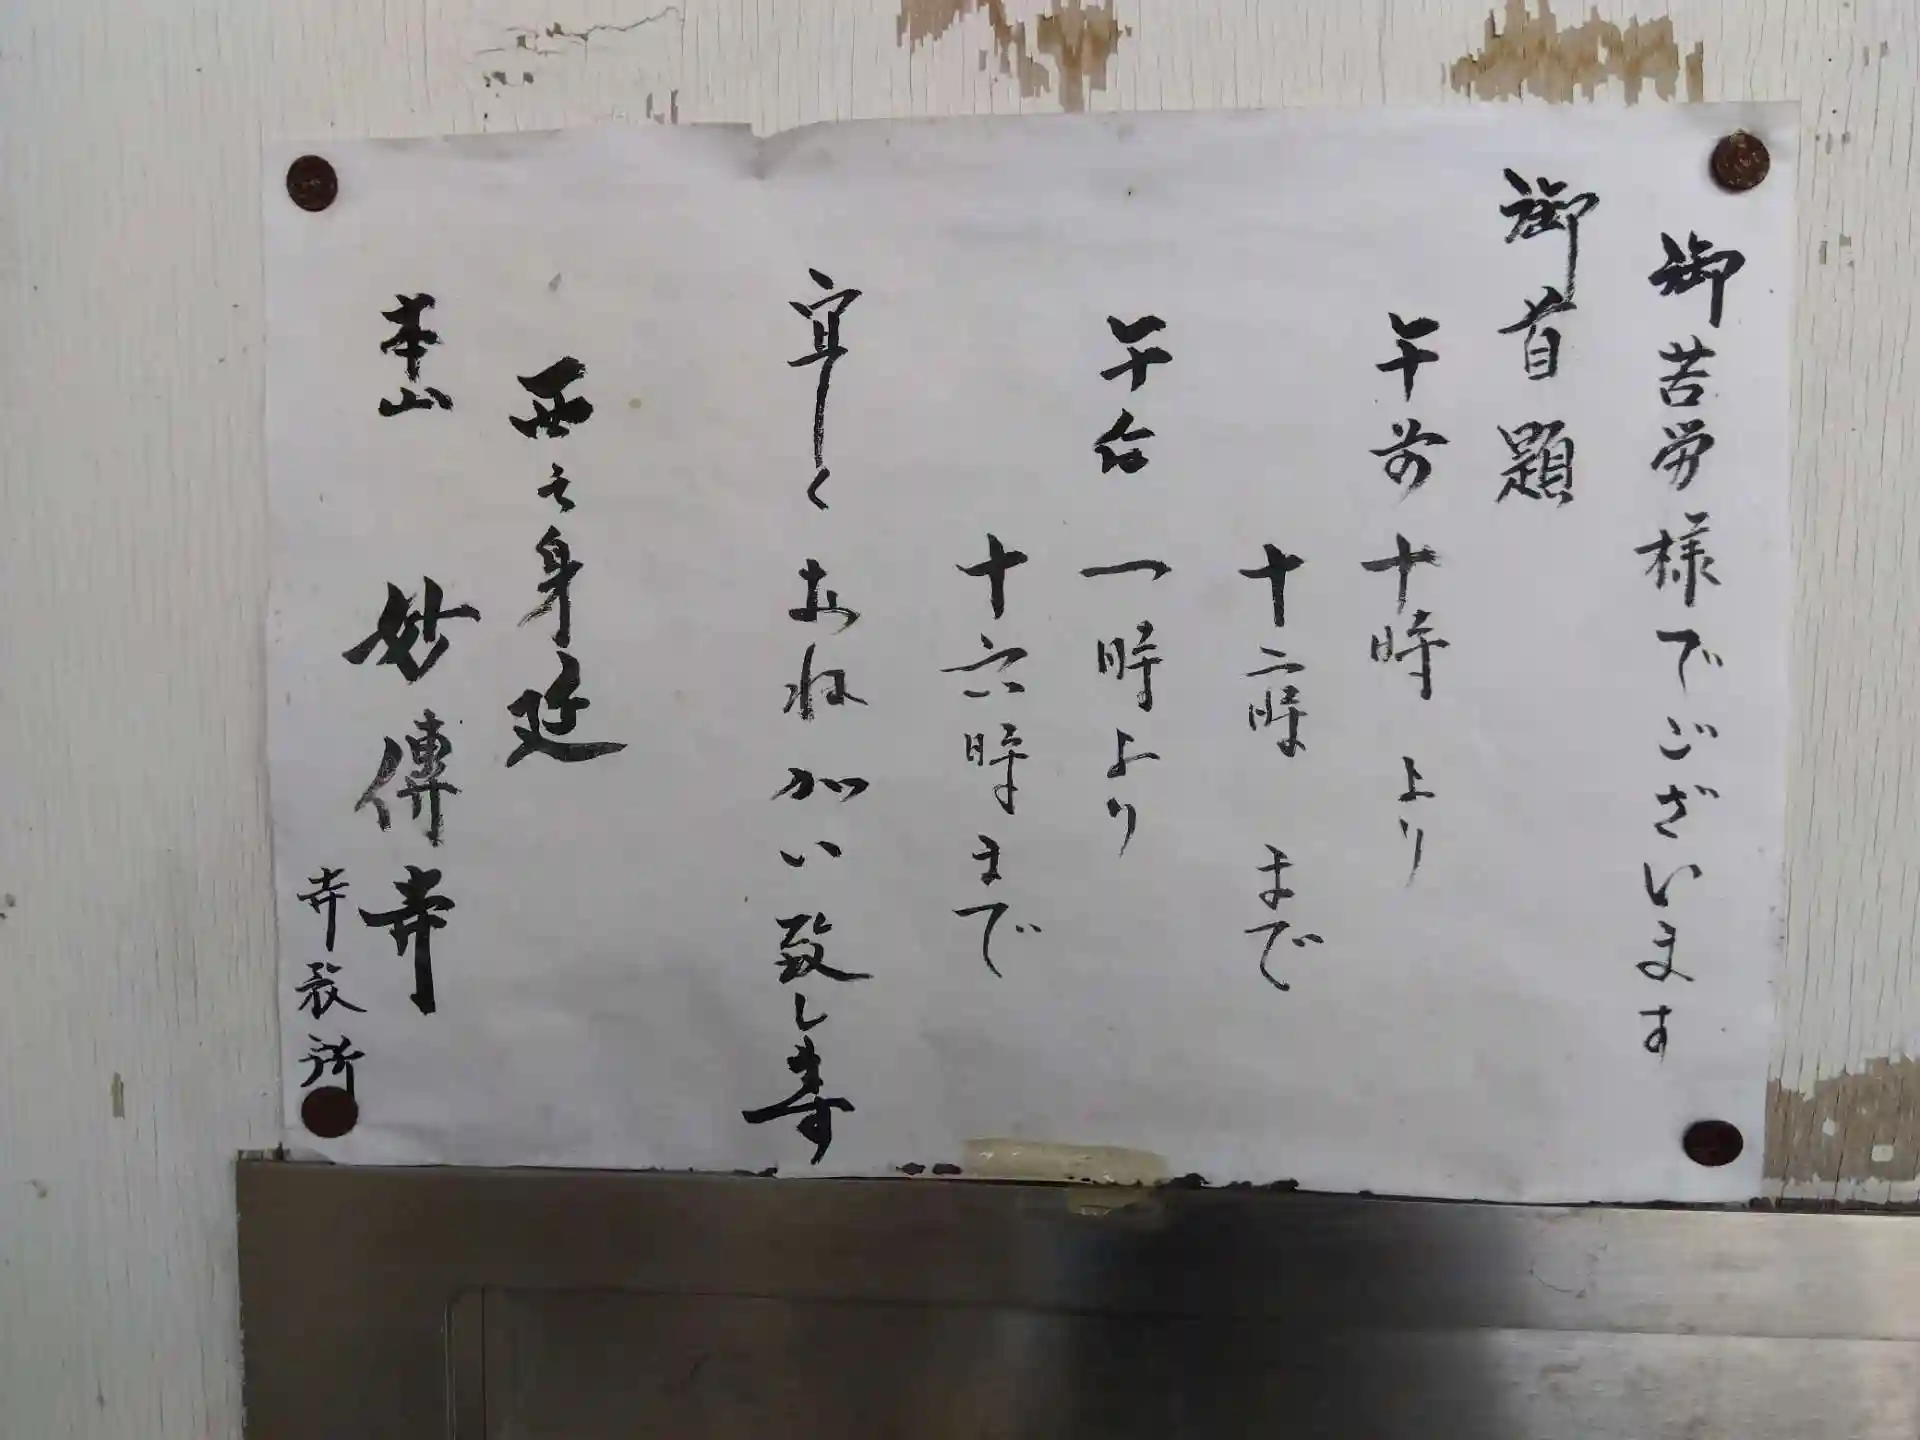 御苦労様でございます
御首題
午前十時より
十二時まで
午后一時より
十六時まで
宜しくおねがい致します
西之身延
本山 妙傳寺
寺務所